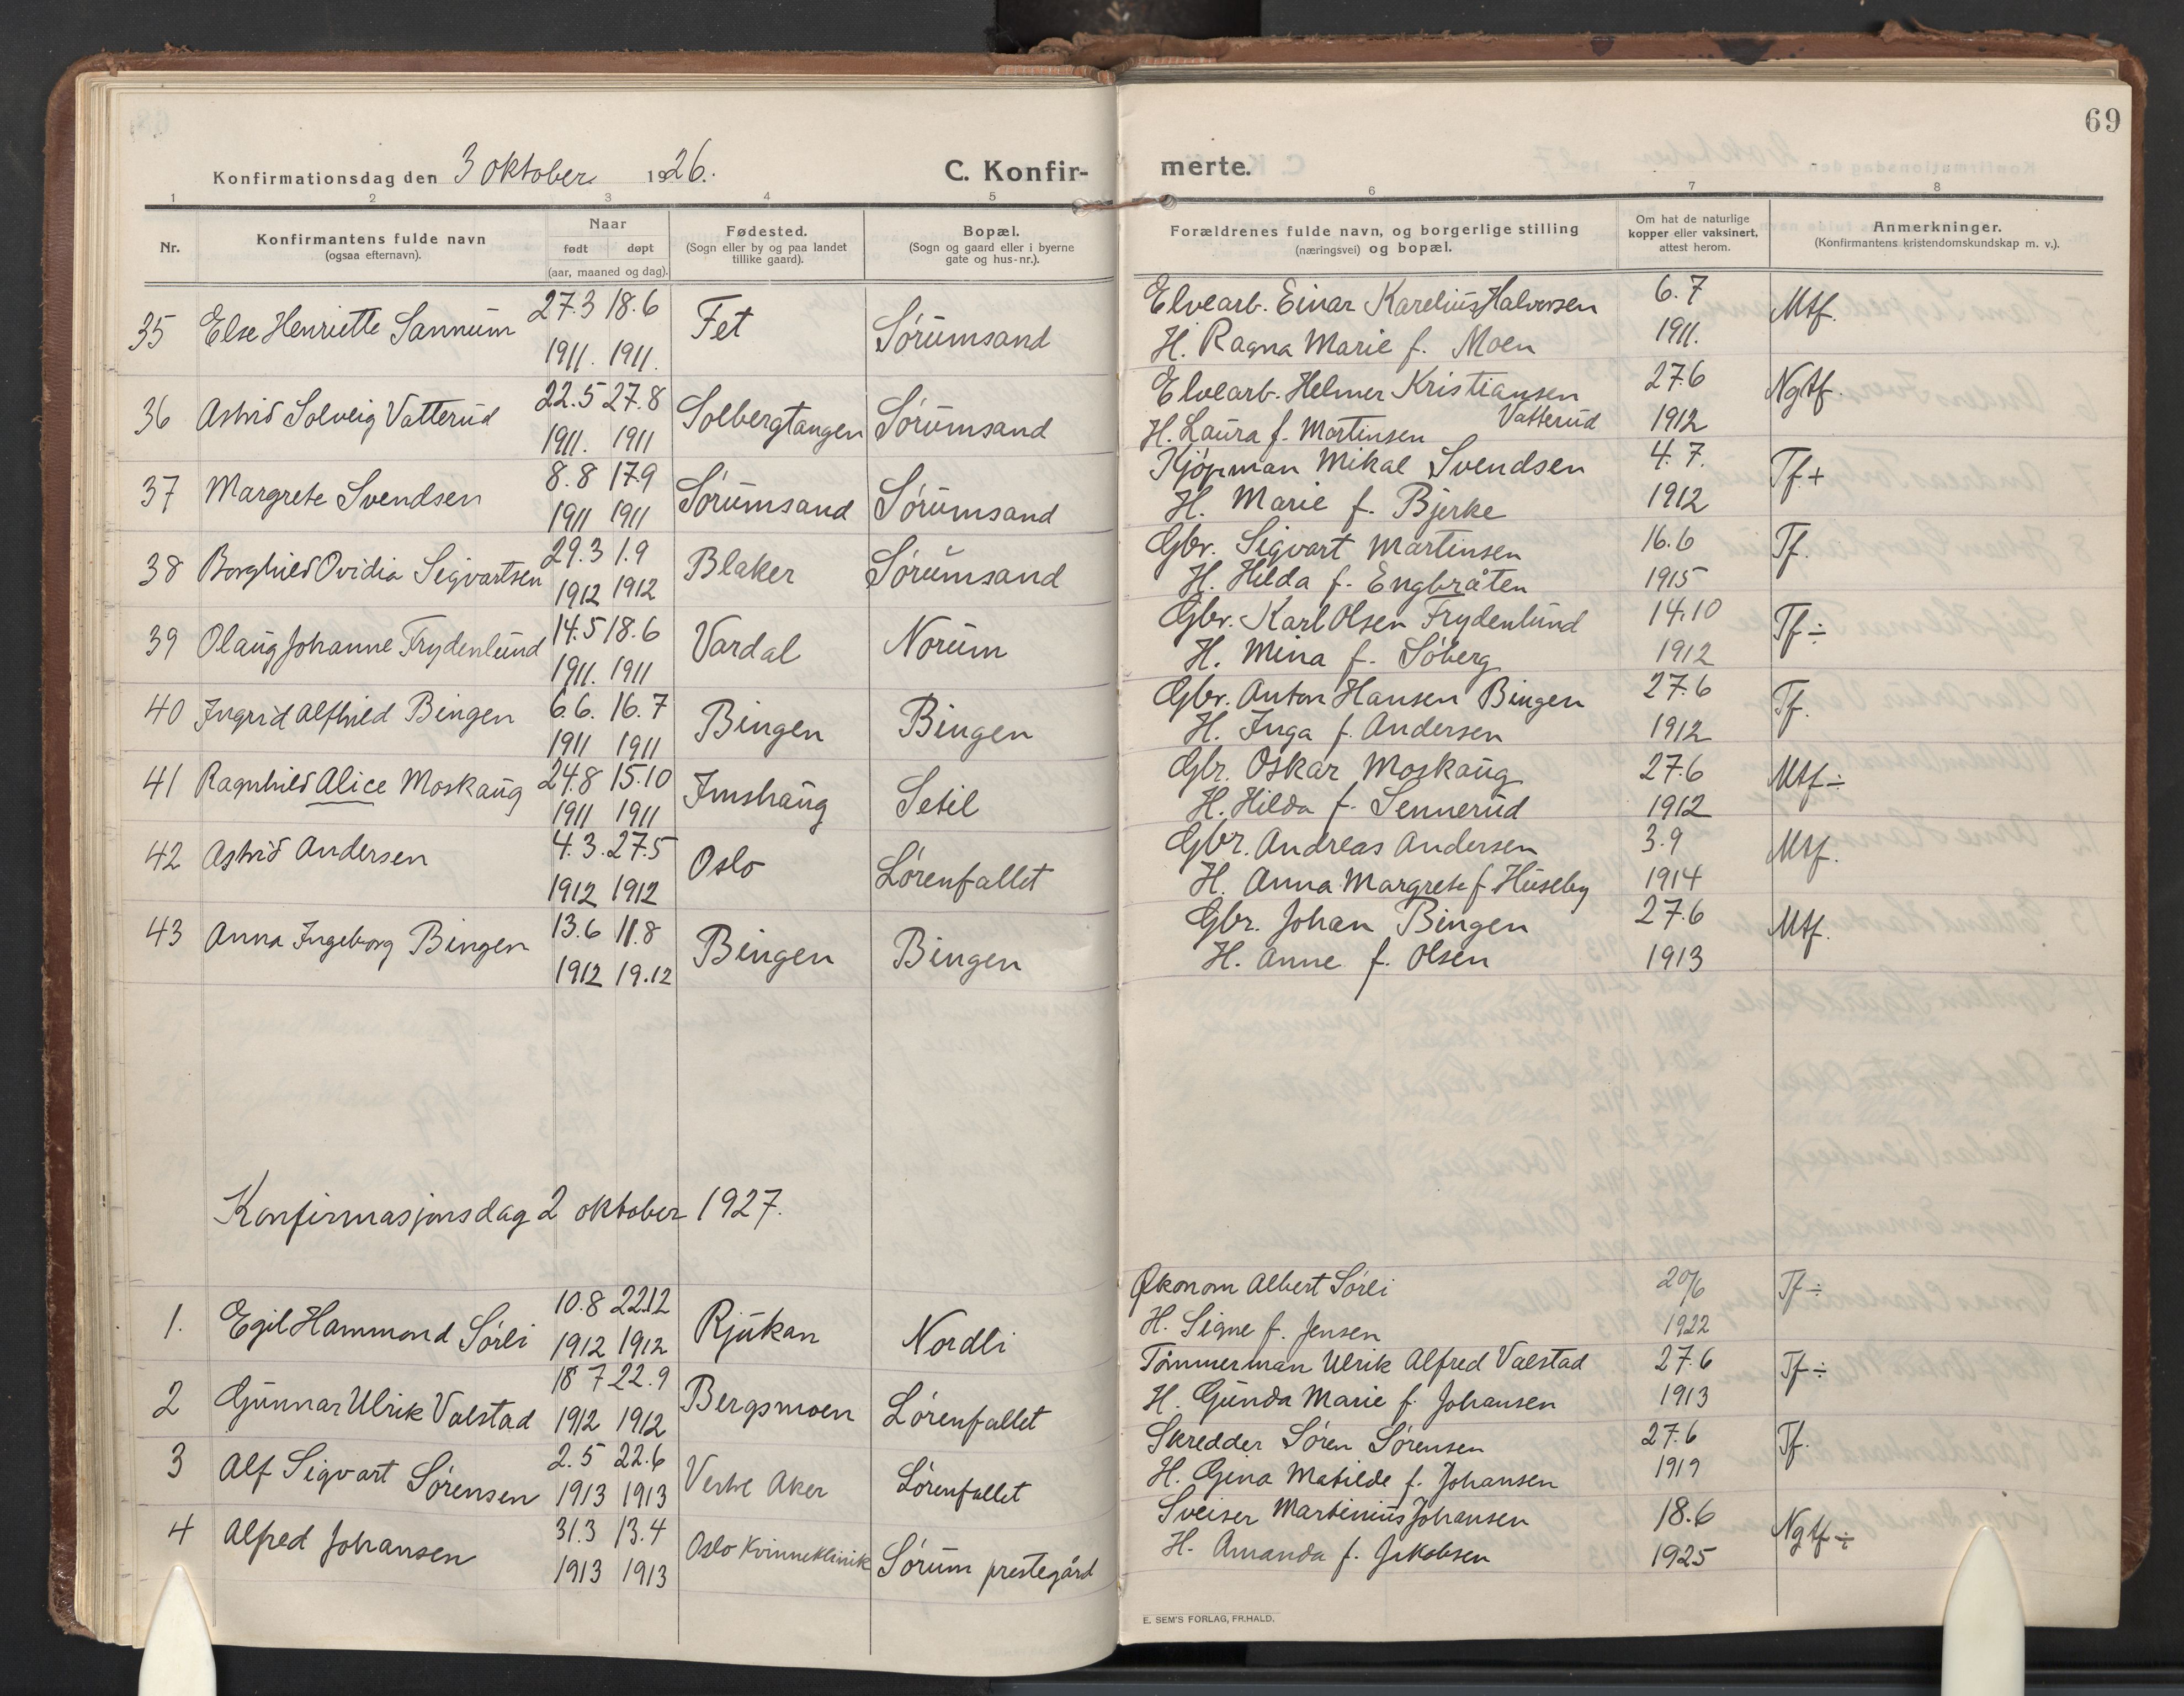 69
Konfirmationsdag den 3 oktober 1926.
C. Konfir- merte.
1 2 3 4 5 6 7 8
Nr.
Konfirmantens fulde navn
(ogsaa efternavn).
Naar
født døpt
(aar, maaned og dag).
Fødested.
(Sogn eller by og paa landet
tillike gaard).
Bopæl.
(Sogn og gaard eller i byerne
gate og hus-nr.).
Forældrenes fulde navn, og borgerlige stilling
(næringsvei) og bopæl.
Om hat de naturlige
kopper eller vaksinert,
attest herom.
Anmerkninger.
(Konfirmantens kristendomskundskap m. v.).
35 Else Henriette Sannum 27.3 18.6 Fet Sørumsand Elvearb. Einar Karelius Halvorsen 6.7 Mtf.
1911. 1911. H. Ragna Marie f. Moen 1911.
36 Astrid Solveig Vatterud 22.5 27.8 Solbergtangen Sørumsand Elvearb. Helmer Kristiansen 27.6 Ngtf.
1911. 1911 H. Laura f. Martinsen Vatterud 1912
37 Margrete Svendsen 8.8 17.9 Sørumsand Sørumsand Kjøpman Mikal Svendsen 4.7. Tf+
1911 1911 H. Marie f. Bjerke 1912
38 Borghild Ovidia Sigvartsen 29.3 1.9 Blaker Sørumsand Gbr. Sigvart Martinsen 16.6 Tf.
1912 1912 H. Hilda f. Engbråten 1915
39 Olaug Johanne Frydenlund 14.5 18.6 Vardal Norum Gbr. Karl Olsen Frydenlund 14.10 Tf÷
1911. 1911 H. Mina f. Søberg 1912
40 Ingrid Alfhild Bingen 6.6. 16.7 Bingen Bingen Gbr. Anton Hansen Bingen 27.6 Tf.
1911 1911 H. Inga f. Andersen 1912
41 Ragnhild Alice Moskaug 24.8 15.10 Imshaug Setil Gbr. Oskar Moskaug 27.6 Mtf÷
1911 1911 H. Hilda f. Sennerud 1912
42 Astrid Andersen 4.3. 27.5 Oslo Lørenfallet Gbr. Andreas Andersen 3.9 Mtf.
1912 1912 H. Anna Margrete f. Huseby 1914
43 Anna Ingeborg Bingen 13.6 11.8 Bingen Bingen Gbr. Johan Bingen 27.6 Mtf.
1912 19.12 H. Anne f. Olsen 1913
Konfirmasjonsdag 2 oktober 1927.
1. Egil Hammond Sørli 10.8 22.12 Rjukan Nordli Økonom Albert Sørli 20/6 Tf÷
1912 1912 H. Signe f. Jensen 1922
2 Gunnar Ulrik Valstad 18 7 22.9 Bergsmoen Lørenfallet Tømmerman Ulrik Alfred Valstad 27.6 Tf÷
1912 1912 H. Gunda Marie f. Johansen 1913
3 Alf Sigvart Sørensen 2.5 22.6 Vestre Aker Lørenfallet Skredder Søren Sørensen 27.6 Tf.
1913 1913 H. Gina Matilde f. Johansen 1919
4 Alfred Johansen 31.3 13.4 Oslo Kvinneklinik Sørum prestegård Sveiser Martinius Johansen 18.6 Ngtf÷
1913 1913 H. Amanda f. Jakobsen 1925
E. SEM'S FORLAG, FR.HALD.